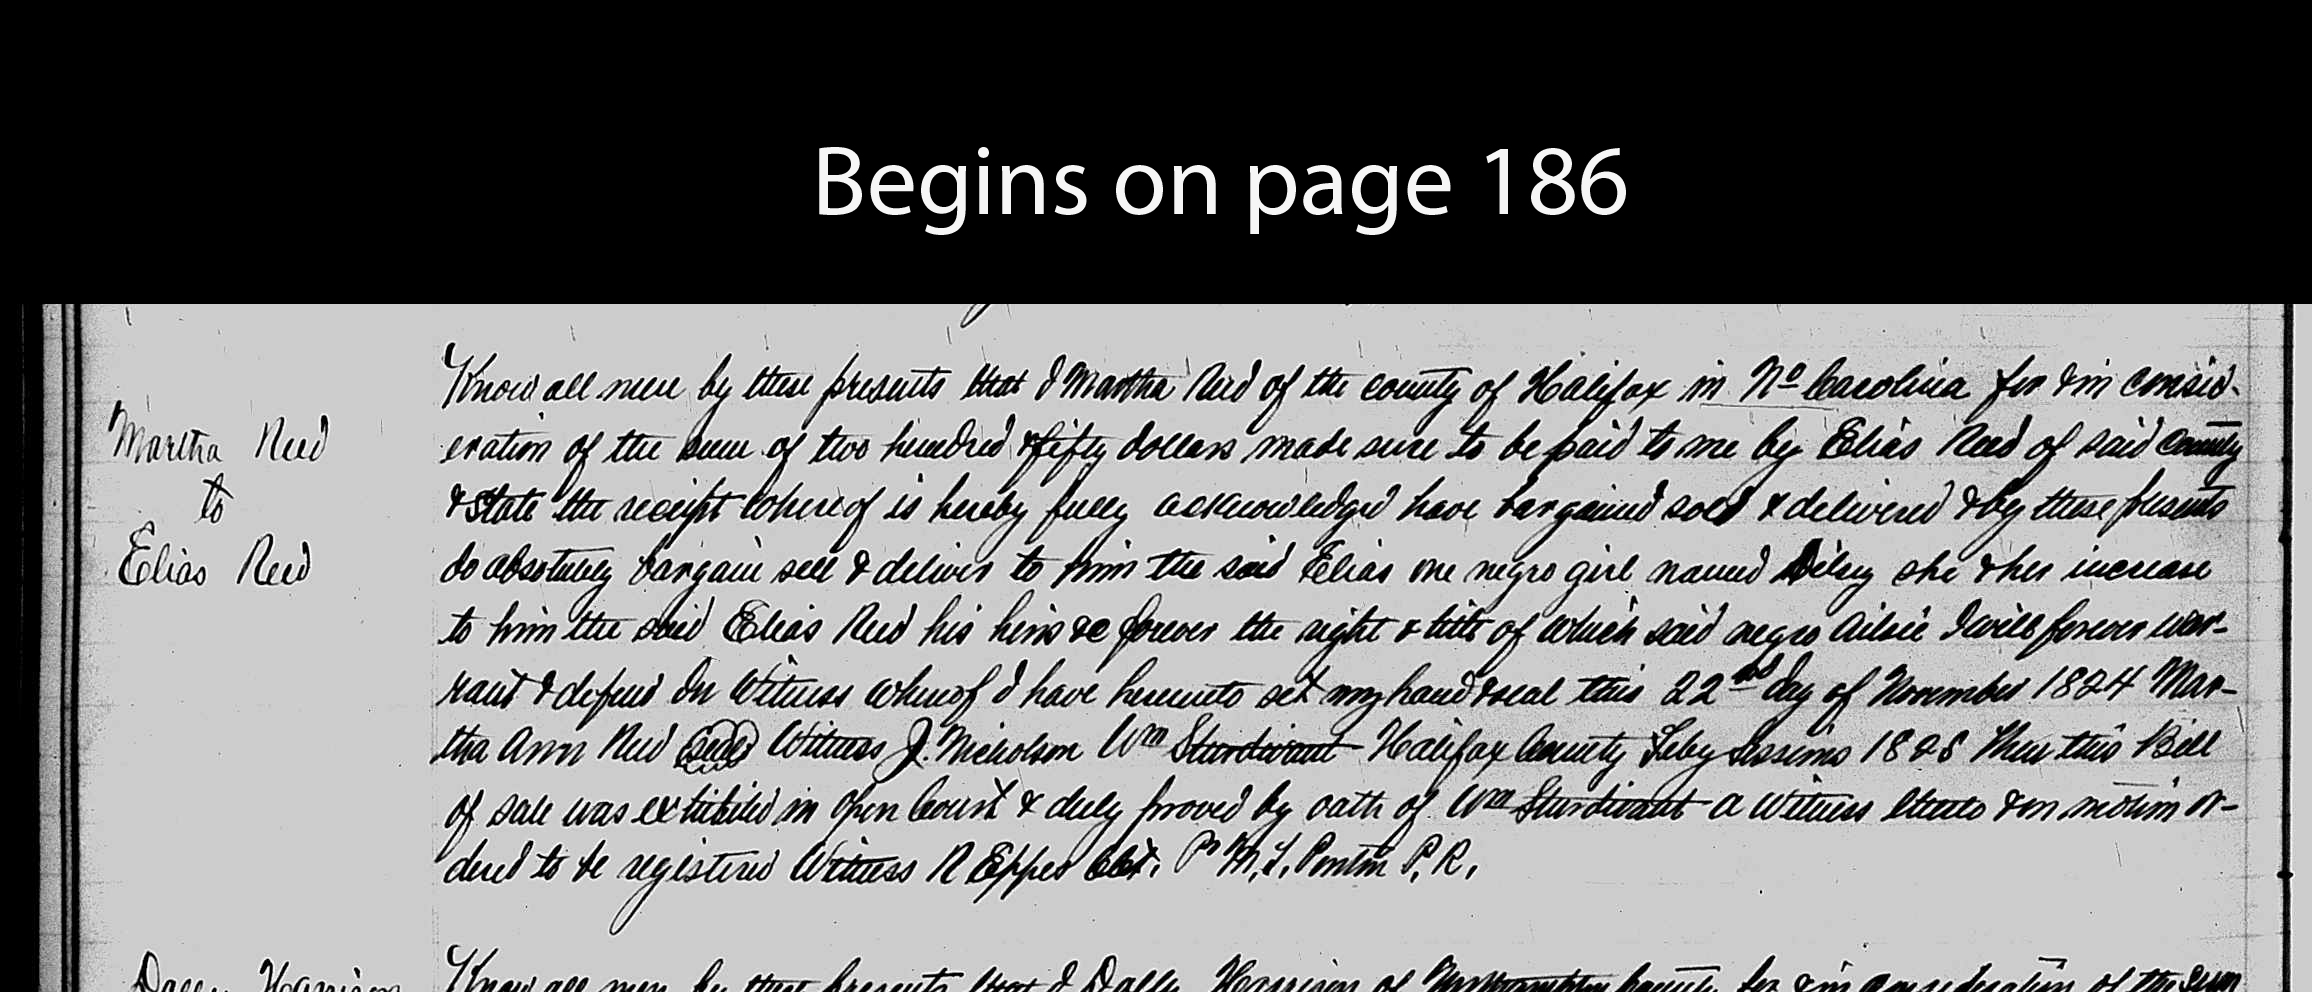 Begins on page 186
Know all men by these presents that I Martha Reed of the county of Halifax in No Carolina for & in consid-
Martha Reed
eration of the sum of two hundred & fifty dollars made sure to be paid to me by Elias Reed of said county
to
& State the receipt whereof is hereby fully acknowledged have bargained sold & delivered & by these presents
Elias Reed
do absolutely bargain sell & deliver to him the said Elias one negro girl named Dilsy she & her increase
to him the said Elias Reed his heirs &c forever the right & title of which said negro I will forever war-
rant & defend In Witness whereof I have hereunto set my hand & seal this 22nd day of November 1824 Mar-
tha Ann Reed Seal Witness J. Nicholson Wm Sturdivant Halifax County Feby Sessions 1828 Then this Bill
of sale was exhibited in Open Court & duly proved by oath of Wm Sturdivant a Witness thereto & on motion or-
dered to be registered Witness R Eppes Clk. Pr M, Ponton P. R,
Harrison
Know all men by these presents that I Harrison of Northampton County for & in consideration of the sum